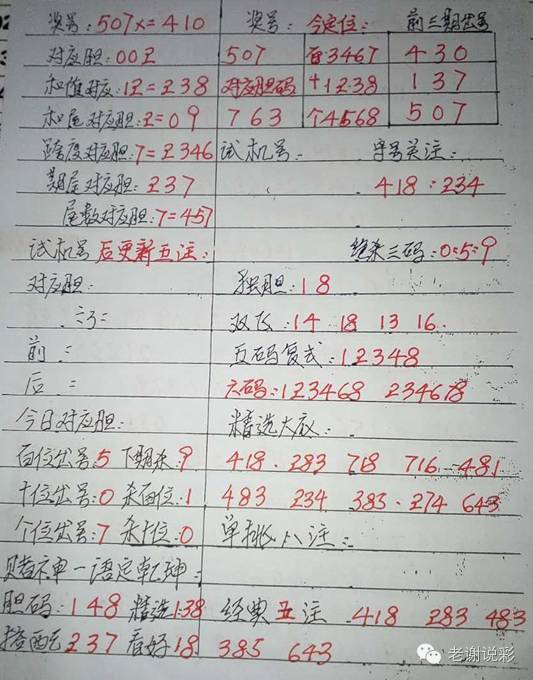 奖号:507x=410 奖号: 今定位: 前三期出号
对应胆:00Z 507 百3467 430
和值对应:1Z=Z38 对应胆码 十1Z38 137
和尾对应胆:Z=09 763 个4568 507
跨度对应胆:7=Z346 试机号: 守号关注:
期尾对应胆:Z37 418:Z34
尾数对应胆:7=457
试机号后更新五注: 绝杀三码:0:5:9
对应胆: 独胆:18
双飞:14 18 13 16.
前 = 五码复式:1Z348
后 = 六码:1Z3468 Z34678
今日对应胆: 精选大底:
百位出号:5 下期杀:9 418. Z83 718 716 481
十位出号:0 杀百位:1 483 Z34 383. Z74 643
个位出号:7 杀十位:0 单挑八注:
赌神一语定乾坤:
胆码:148 精选138 经典五注 418 Z83 483
搭配Z37 看好18 385 643
老谢说彩